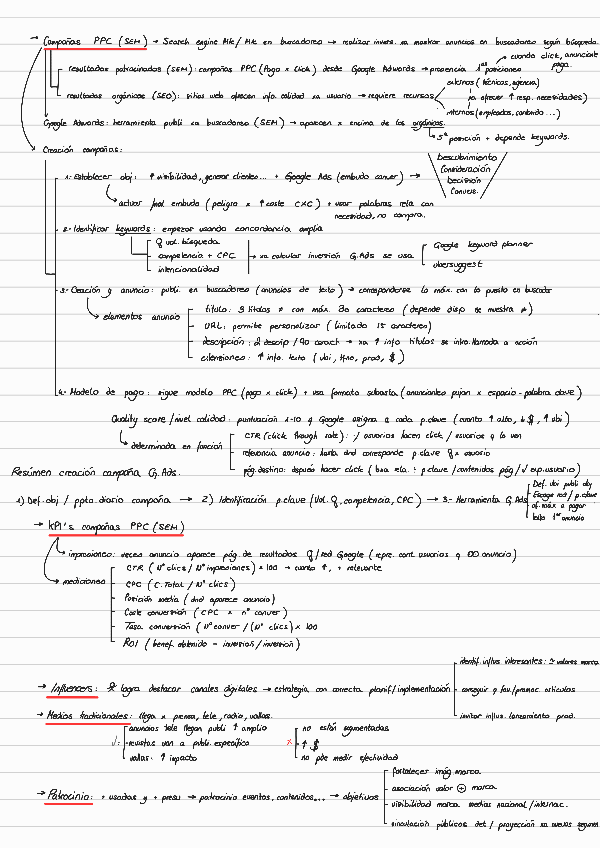 → Campañas PPC (SEM) → Search engine Mk / Mk en buscadores → realizar invers. xa mostrar anuncios en buscadores según búsqueda.
↪ cuando click, anunciante paga.
resultados patrocinados (SEM): campañas PPC (Pago x Click) desde Google Adwords → presencia 1ªˢ posiciones
externos (técnicos, agencia)
resultados orgánicos (SEO): sitios web ofrecen info. calidad xa usuario → requiere recursos (xa ofrecer ↑ resp. necesidades)
internos (empleados, contenido...)
Google Adwords: herramienta publi xa buscadores (SEM) → aparecen x encima de los orgánicos.
↪ 5ª posición + depende keywords.
Creación campañas:
Descubrimiento
Consideración
Decisión
Convers.
1.- Establecer obj: ↑ visibilidad, generar clientes... + Google Ads (embudo conver) →
↪ actuar final embudo (peligro x ↑ coste CXC) + usar palabras rela con necesidad, no compra.
2.- Identificar keywords: empezar usando concordancia amplia
Q vol. búsqueda
competencia + CPC → xa calcular inversión G.Ads se usa
intencionalidad
Google keyword planner
Ubersuggest
3.- Creación y anuncio: publi. en buscadores (anuncios de texto) → corresponderse lo máx. con lo puesto en buscador
↪ elementos anuncio
título: 3 títulos ≠ con máx. 30 caracteres (depende disp. se muestra ≠)
URL: permite personalizar (limitado 15 caracteres)
descripción: 2 descrip / 90 caract → xa ↑ info títulos se intro. llamada a acción
extensiones: ↑ info. texto (ubi, tfno, prod, $)
4.- Modelo de pago: sigue modelo PPC (pago x click) + usa formato subasta (anunciantes pujan x espacio-palabra clave)
Quality score / nivel calidad: puntuación 1-10 q Google asigna a cada p.clave (cuanto ↑ alto, ↓ $, ↑ ubi)
↪ determinada en función
CTR (click through rate): usuarios hacen click / usuarios q lo ven
relevancia anuncio: hasta dnd corresponde p.clave Q x usuario
pág. destino: después hacer click (bua rela. : p.clave / contenidos pág / √ exp. usuario)
Resúmen creación campaña G.Ads.
1) Def. obj / ppto. diario campaña → 2) Identificación p.clave (Vol. Q, competencia, CPC) → 3.- Herramienta G.Ads
Def. ubi publi obj
Escoge red / p.clave
of. máx a pagar
texto 1ᵉʳ anuncio
→ KPI's campañas PPC (SEM)
↪ impresiones: veces anuncio aparece pág. de resultados Q / red Google (repre. cant. usuarios q DO anuncio)
→ mediciones
CTR (Nº clics / Nº impresiones) x 100 → cuanto ↑, + relevante
CPC (C.Total / Nº clics)
Posición media (dnd aparece anuncio)
Coste conversión (CPC x nº conver)
Tasa conversión (Nº conver / (Nº clics) x 100
ROI (benef. obtenido - inversión / inversión)
identif. influs interesantes: valores marca
→ Influencers: logra destacar canales digitales → estrategia con correcta planif / implementación
conseguir q fav / promoc. artículos
invitar influs. lanzamiento prod.
→ Medios tradicionales: llega x prensa, tele, radio, vallas.
√:
anuncios tele llegan publi ↑ amplio
revistas van a publi. específico
vallas: ↑ impacto
x
no están segmentadas
↑ $
no pde medir efectividad
→ Patrocinio: + usadas y + presu → patrocinio eventos, contenidos... → objetivos
fortalecer imág marca.
asociación valor ⊕ marca.
visibilidad marca medios nacional / internac.
vinculación públicos det / proyección xa nuevos segmen